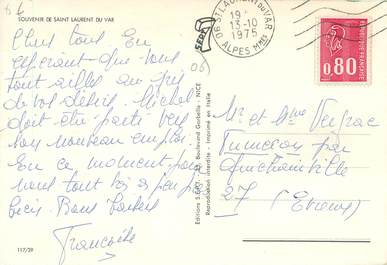 SOUVENIR DE SAINT LAURENT DU VAR
Chers tous En
espérant que vous
tout ailles au gré
de vos désirs. Michel
doit être parti vers
son nouveau emploi.
En ce moment pour
nous tout va à peu près
bien. Bons baisers
Francoise
117/29
Editions S.E.P.T. Boulevard Gorbella - NICE
Reproduction interdite - Imprimé en Italie
SEPT
06 ST LAURENT DU VAR
19
13-10
1975
ALPES Mmes
0,80
Mr et Mme
par
27 (Evreux)